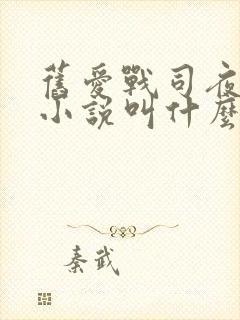 舊愛戰司夜
小說叫什麼
秦武